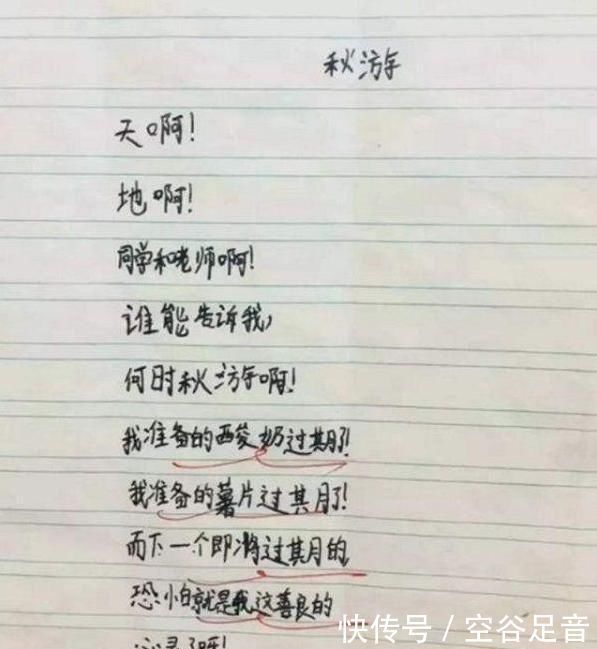 秋游
天啊！
地啊！
同学和老师啊！
谁能告诉我，
何时秋游啊！
我准备的酸奶过期了！
我准备的薯片过期了！
而下一个即将过期的
恐怕就是我这善良的
快传号 / 空谷足音